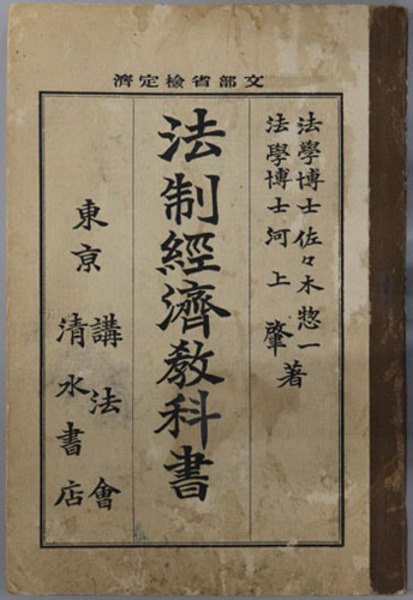 文部省檢定濟
法學博士 佐々木惣一
法學博士 河上 肇 著
法制經濟敎科書
東京 講法會
清水書店